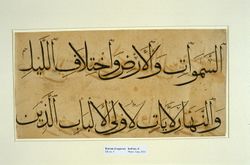 السموات والارض واختلاف الليل
والنهار لآيات لاولي الالباب الذين